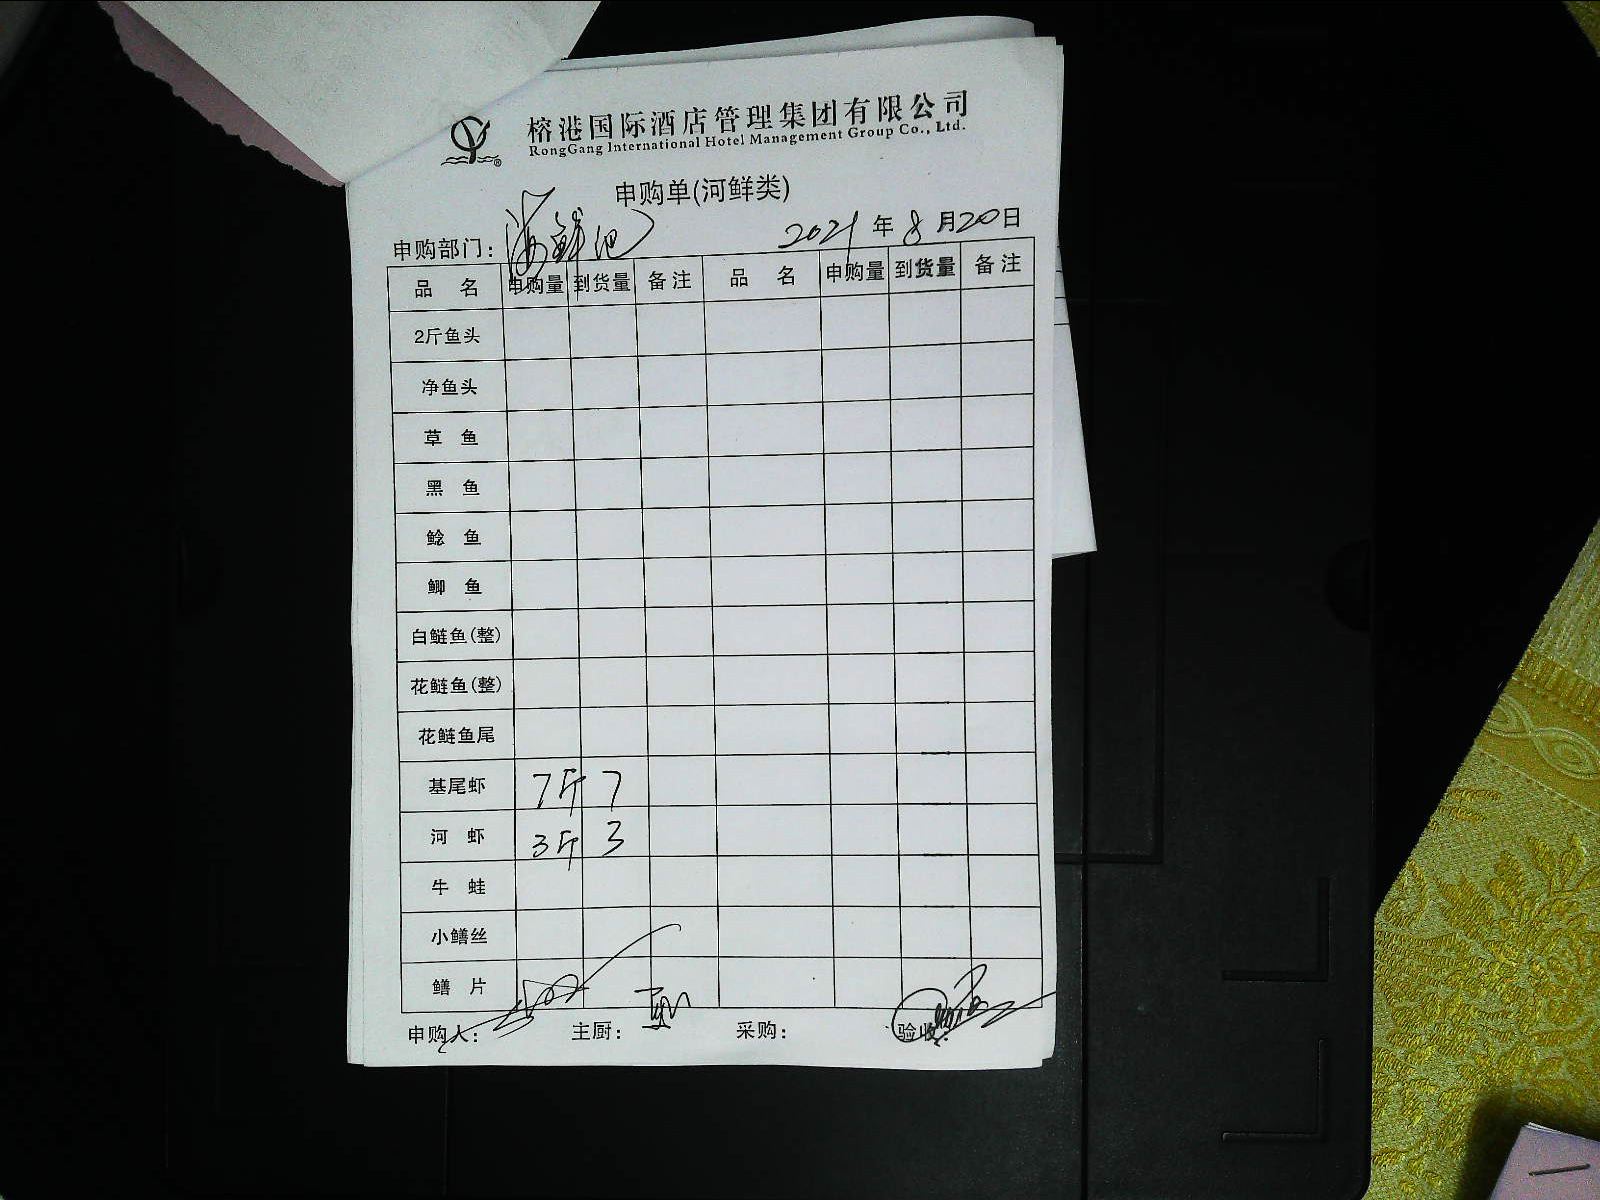 榕港国际酒店管理集团有限公司
RongGang International Hotel Management Group Co., Ltd.
申购单(河鲜类)
申购部门: 海鲜池 2021年8月20日
品名 申购量 到货量 备注 品名 申购量 到货量 备注
2斤鱼头
净鱼头
草鱼
黑鱼
鲶鱼
鲫鱼
白鲢鱼(整)
花鲢鱼(整)
花鲢鱼尾
基尾虾 7斤 7
河虾 3斤 3
牛蛙
小鳝丝
鳝片
申购人: 主厨: 采购: 验收: